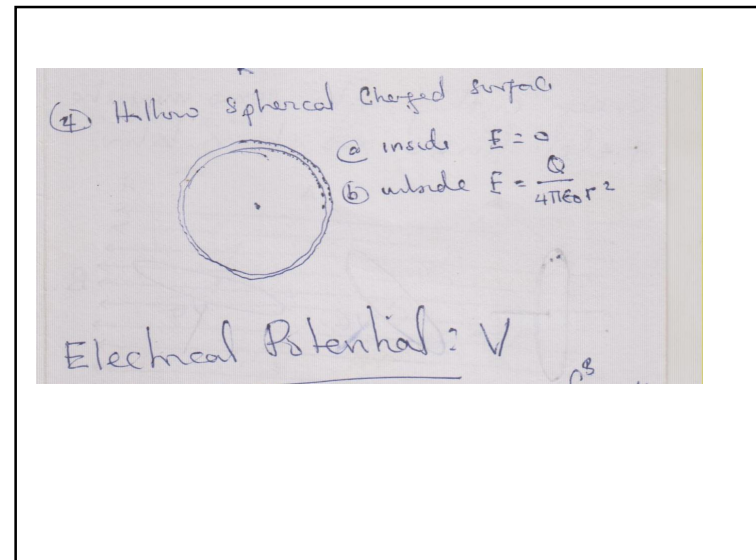 ④ Hollow Spherical Charged surface
ⓐ inside E = 0
ⓑ outside E = Q / 4πε₀r²
Electrical Potential : V